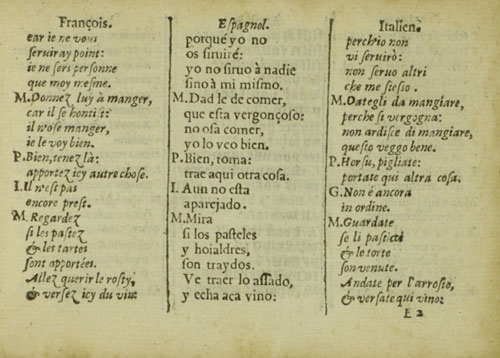 François.
car ie ne vous
seruiray point:
ie ne sers personne
que moy mesme.
M. Donnez luy à manger,
car il se honti st:
il n'ose manger,
ie le voy bien.
P. Bien, tenez là:
apportez icy autre chose.
I. Il n'est pas
encore prest.
M. Regardez
si les pastez
& les tartes
sont apportées.
Allez querir le rosty,
& versez icy du vin:
Espagnol.
porque yo no
os siruiré:
yo no siruo à nadie
sino à mi mismo.
M. Dad le de comer,
que esta vergonçoso:
no osa comer,
yo lo veo bien.
P. Bien, toma:
trae aqui otra cosa.
I. Aun no esta
aparejado.
M. Mira
si los pasteles
y hojaldres,
son traydos.
Ve traer lo assado,
y echa aca vino:
Italien.
perch'io non
vi seruirò:
non seruo altri
che me stesso.
M. Dategli da mangiare,
perche si vergogna:
non ardisce di mangiare,
questo veggo bene.
P. Horsu, pigliate:
portate qui altra cosa.
G. Non é ancora
in ordine.
M. Guardate
se li pasticci
& le torte
son venute.
Andate per l'arrosto,
& versate qui vino:
E 2